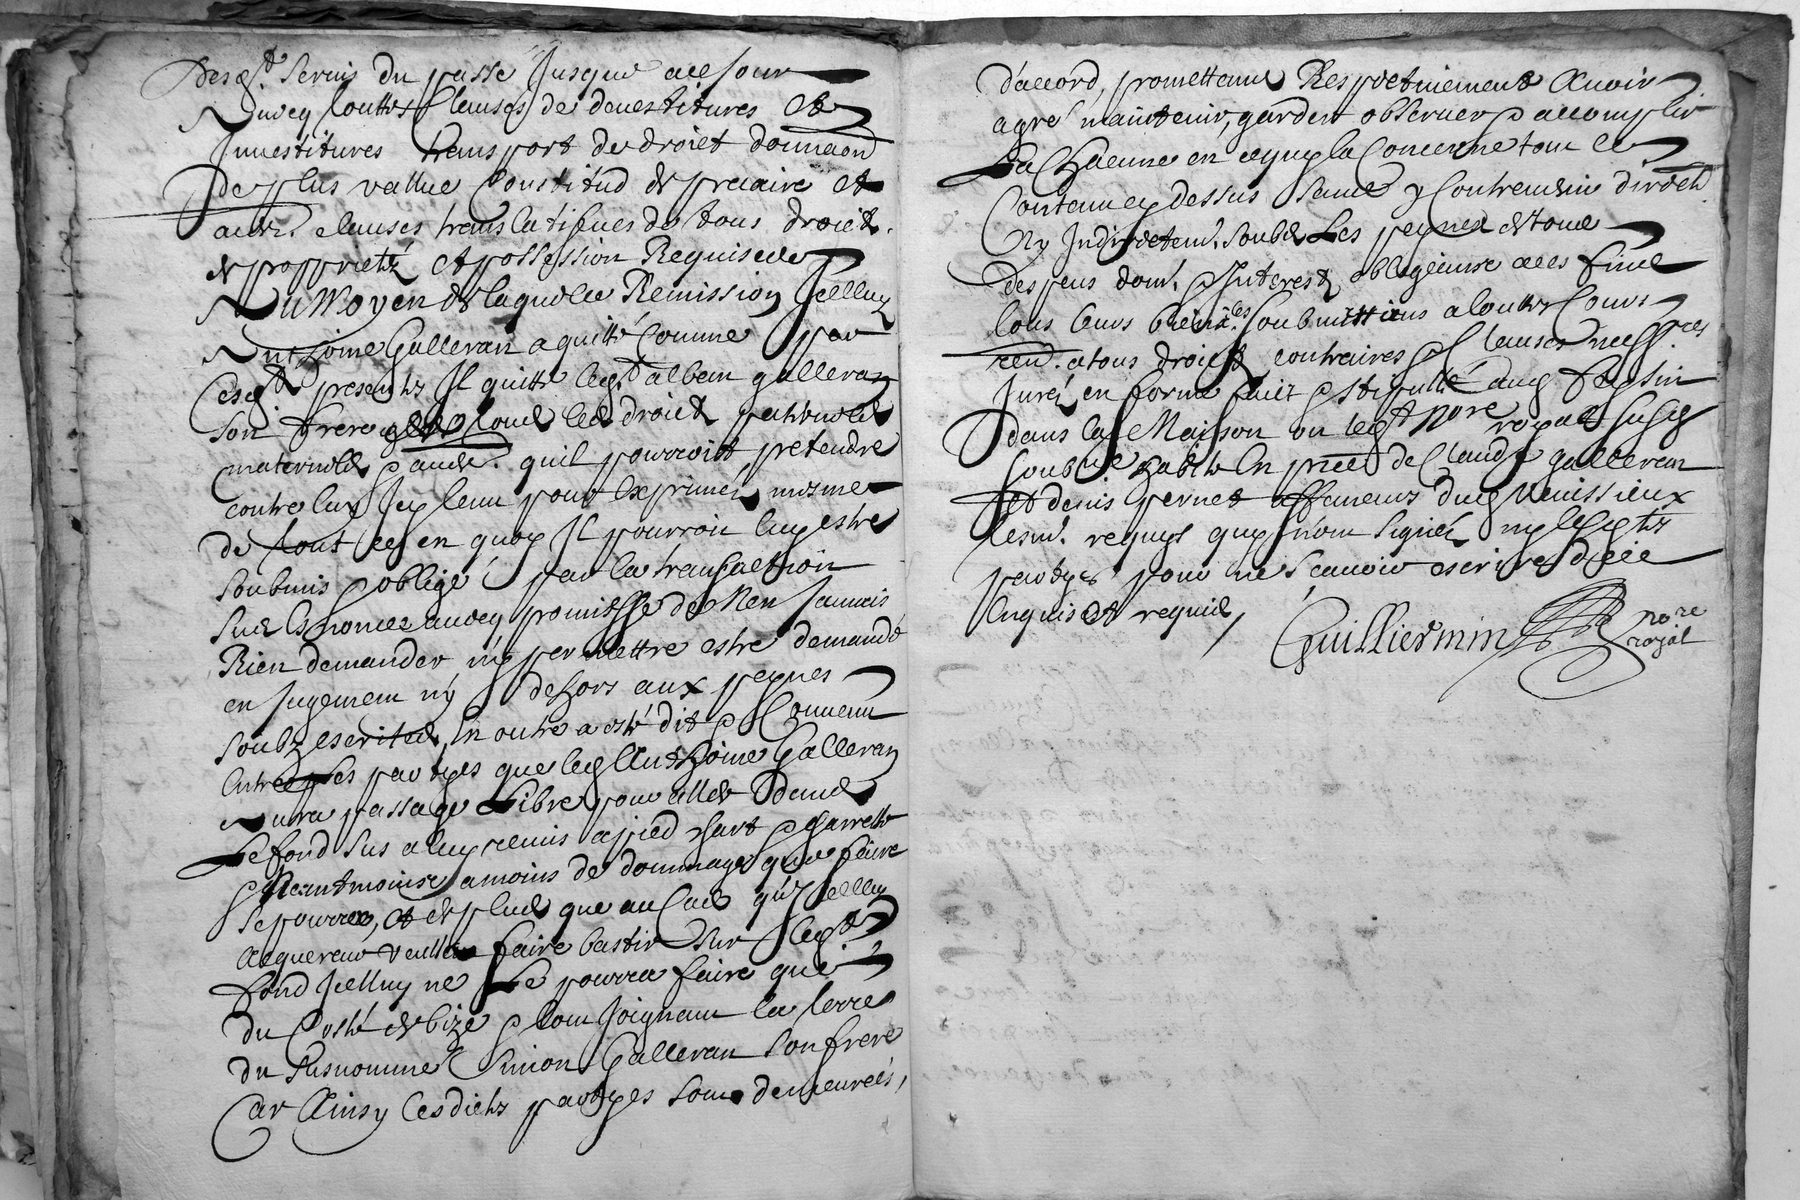 Desd.ts servis du passé Jusque a ce Jour
Avecq touttes Clauses de devestitures Et
Investitures transport de droict donnaon
De plus vallue Constitud de precaire et
autr. clauses translatifves de tous droicts
de proprieté et possession Requises
Au Moyen de laquelle Remission Jcelluy
Anthoine Galleran a quitté Comme par
Cesd. presentes Il quitte led.t alban galleran
Son frere de tous les droicts paternels
maternels & autr. quil pourroit pretendre
contre luy Icy tenu pour exprimés mesme
de tout ce en quoy Il pourroit luy estre
soubmis & obligé par la transaction
Sus Enoncee avecq promesse de Nen Jamais
Rien demander ny permettre estre demandé
en Jugement ny dehors aux peynes
soubz escrites, En outre a esté dit & Convenu
Entre Les partyes que led Anthoine Galleran
Aura passage Libre pour aller dans
Le fond sus a luy remis a pied chart & charrette
Neantmoins a moins de dommage que faire
se pourra, et de plus que au Cas qu'Icelluy
acquereur veuille faire bastir sur led.t
fond Jcelluy ne Le pourra faire que
du Costé de bize & tout Joignant la terre
du susnommé Simon Galleran son frere
Car Ainsy lesdictes partyes sont demeurées,
d'accord, promettant Respectivement Avoir
agre maintenir, garder observer & accomplir
La Chacune en ce quy la Concerne tout le
Contenu cy dessus sans y Contrevenir directt
Ny Indirectem.t soubz Les peynes de tous
despens dom. & Interests obligeans a ces fins
tous leurs biens soubmissions a touttes Cours
ren. a tous droicts contraires & Clauses necess.res
Jurés en forme fait & stipullé aud feysin
dans la Maison ou led.t nore royal susd
soub.né habite En pñce de Claude galleran
et denis pernet affaneurs dud Venissieux
tesm. requis quy n'ont signés ny lesd.tes
partyes pour ne scavoir escrire de ce
Enquis et requis,
Guilliermin no.re
royal